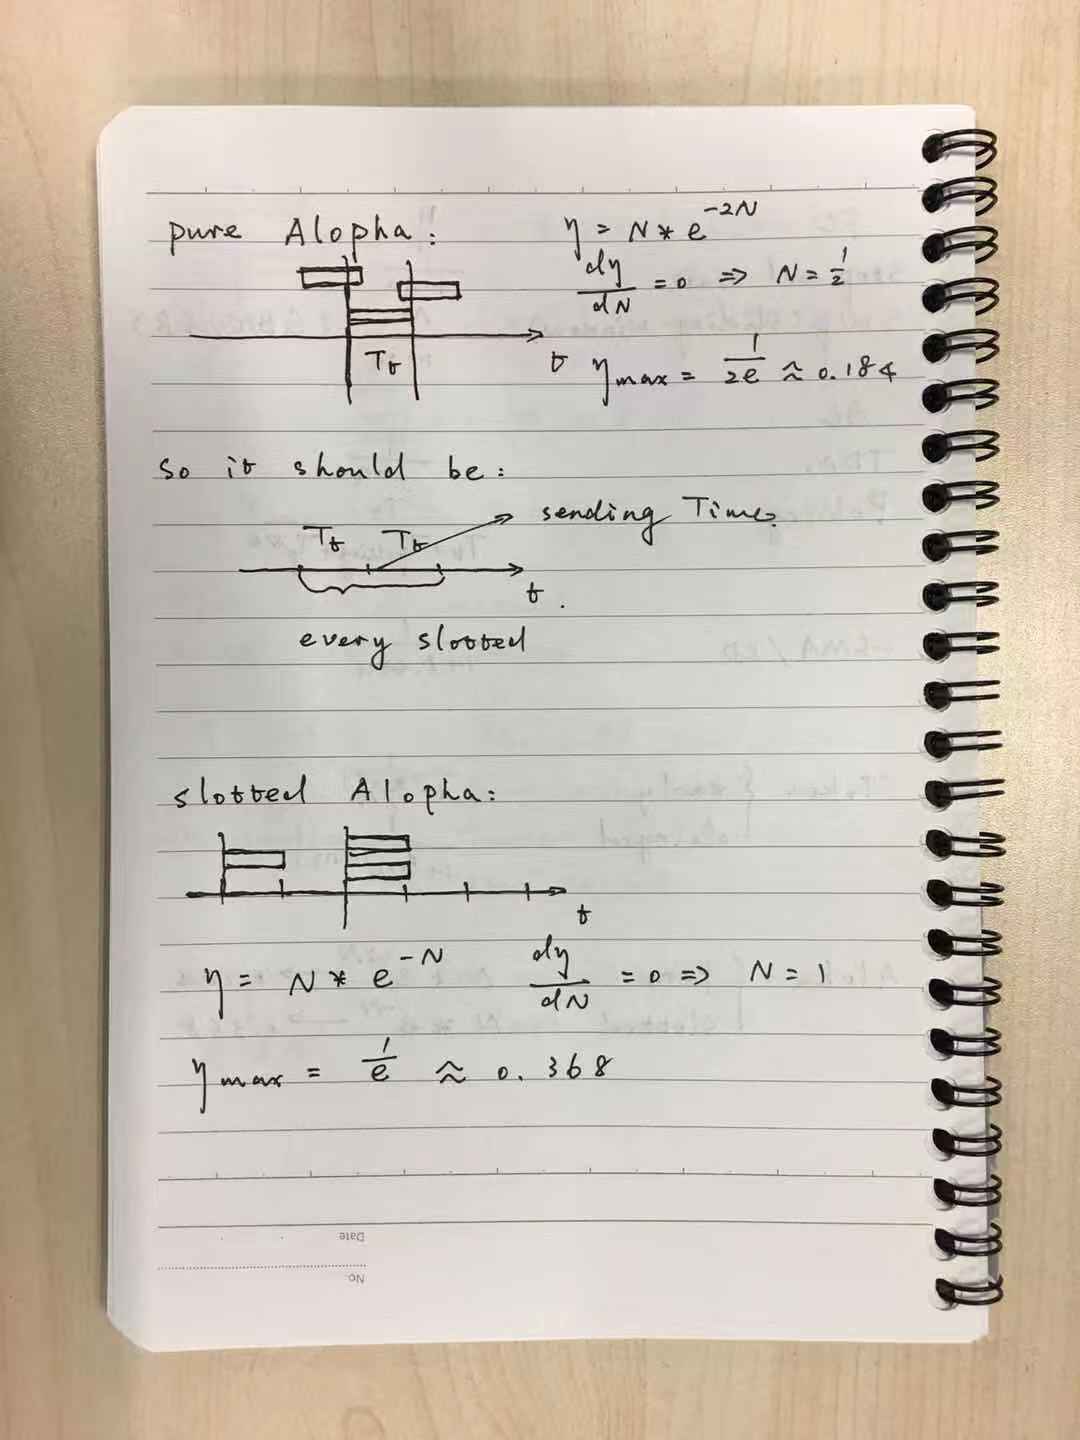 pure Alopha:
η = N * e^-2N
dη/dN = 0 => N = 1/2
Tt
t
ηmax = 1/2e ≈ 0.184
so it should be:
sending Time.
Tt Tt
t.
every slotted
slotted Alopha:
t
η = N * e^-N dη/dN = 0 => N = 1
ηmax = 1/e ≈ 0.368
Date
No.